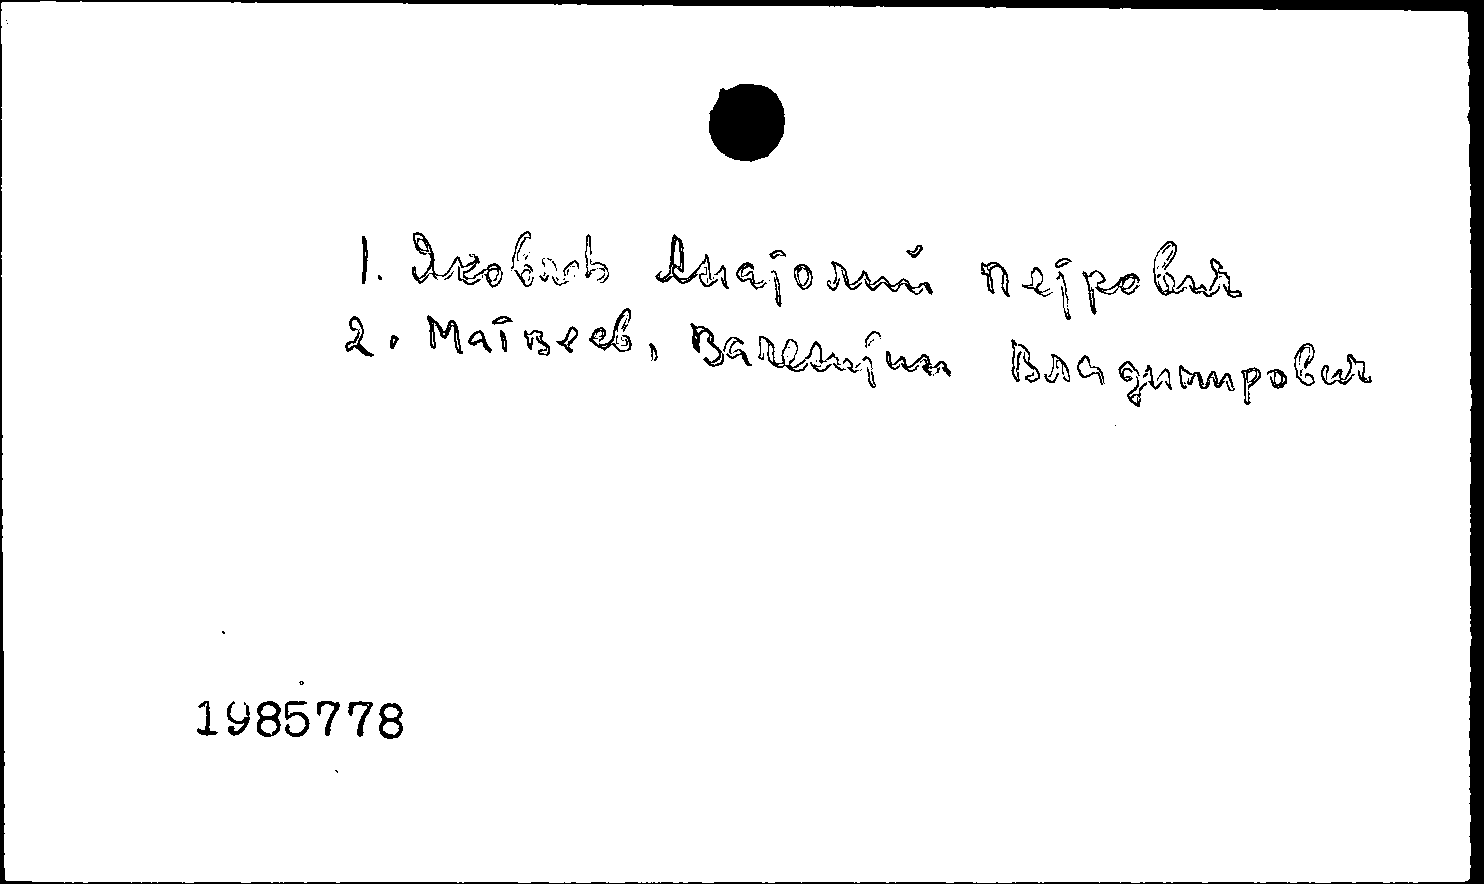 1. Яковлев Анатолий Петрович
2. Матвеев, Валентин Владимирович
1985778